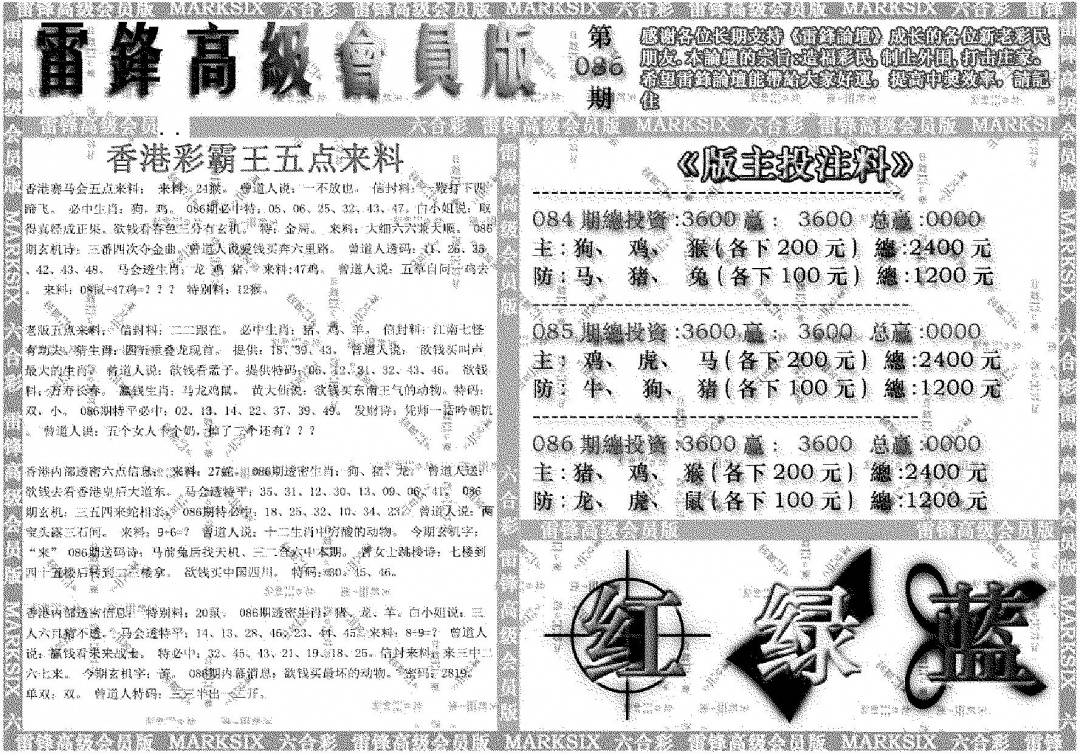 雷鋒高級會員版
第
086
期
感謝各位长期支持《雷鋒論壇》成长的各位新老彩民
朋友.本論壇的宗旨:造福彩民,制止外围,打击庄家。
希望雷鋒論壇能帶給大家好運,提高中獎效率,請記
住
雷锋高级会员
六合彩 雷锋高级会员版 MARKSIX 六合彩 雷锋高级会员版 MARKSIX
香港彩霸王五点来料
香港赛马会五点来料: 来料:24猴。 曾道人说:一不放也。 信封料:一鞭打下四
蹄飞。 必中生肖:狗、鸡。 086期必中特:05、06、25、32、43、47。白小姐说:取
得真经成正果。欲钱看春色三分有玄机。 特:金局。 来料:大细六六兼大顺。 086
期玄机诗:三番四次夺金曲。曾道人说爱钱买奔六里路。 曾道人透码:11、26、35
、42、43、48。 马会透生肖:龙 鸡 猪。 来料:47鸡。 曾道人说:五草自问一鸡去
。 来料:08鼠+47鸡=??? 特别料:12猴。
老版五点来料: 信封料:二二跟在。 必中生肖:猪、鸡、羊。 信封料:江南七怪
有功夫。猜生肖:四五重叠龙现首。 提供:18、39、43。 曾道人说: 欲钱买叫声
最大的生肖。 曾道人说:欲钱看孟子。提供特码:06、12、31、32、43、46。 欲钱
料:万寿长春。 赢钱生肖:马龙鸡鼠。 黄大仙说:欲钱买东南王气的动物。特码:
双、小。 086期特平必中:02、13、14、22、37、39、49。 发财诗:凭师一话吟朝饥
。 曾道人说:五个女人十个奶,掉了一个还有???
香港内部透密六点信息: 来料:27蛇。 086期透密生肖:狗、猪、龙。 曾道人送:
欲钱去看香港皇后大道东。 马会透特平:35、31、12、30、13、09、06、41。 086
期玄机:三五四来蛇相亲。 086期特必中:18、25、32、10、34、23。 曾道人说:两
宝头露三石间。 来料:9+6=? 曾道人说:十二生肖中穷酸的动物。 今期玄机字:
“来” 086期送码诗:马前兔后找天机、三二合六中本期。 曾女士跳楼诗:七楼到
四十五楼后转到二三楼拿。 欲钱买中国四川。 特码:30、45、46。
香港内部透密信息: 特别料:20鼠。 086期透密生肖:猪、龙、羊。白小姐说:三
人六耳猜不透。马会透特平:14、13、28、46、23、44、45。来料:8+9=? 曾道人
说:赢钱看未来战士。 特必中:32、45、43、21、19、18、25。信封来料:来三中二
六七来。 今期玄机字:游。 086期内幕消息:欲钱买最坏的动物。 密码:2819。
单双:双。 曾道人特码:三三平出一二开。
《版主投注料》
084期總投資:3600赢: 3600 总赢:0000
主:狗、 鸡、 猴(各下200元) 總:2400元
防:马、 猪、 兔(各下100元) 總:1200元
085期總投資:3600赢: 3600 总赢:0000
主: 鸡、 虎、 马(各下200元) 總:2400元
防:牛、 狗、 猪(各下100元) 總:1200元
086期總投資:3600赢: 3600 总赢:0000
主:猪、 鸡、 猴(各下200元) 總:2400元
防:龙、 虎、 鼠(各下100元) 總:1200元
雷锋高级会员版 雷锋高级会员版
红 绿 蓝
雷锋高级会员版 MARKSIX 六合彩 雷锋高级会员版 MARKSIX 六合彩 雷锋高级会员版 MARKSIX 六合彩 雷锋高级会员版